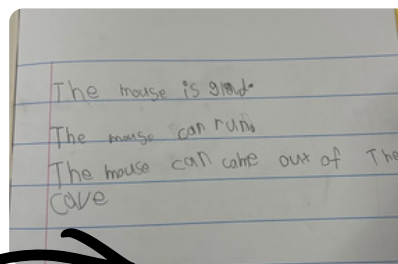 The mouse is glad.
The mouse can run.
The mouse can come out of The
cave